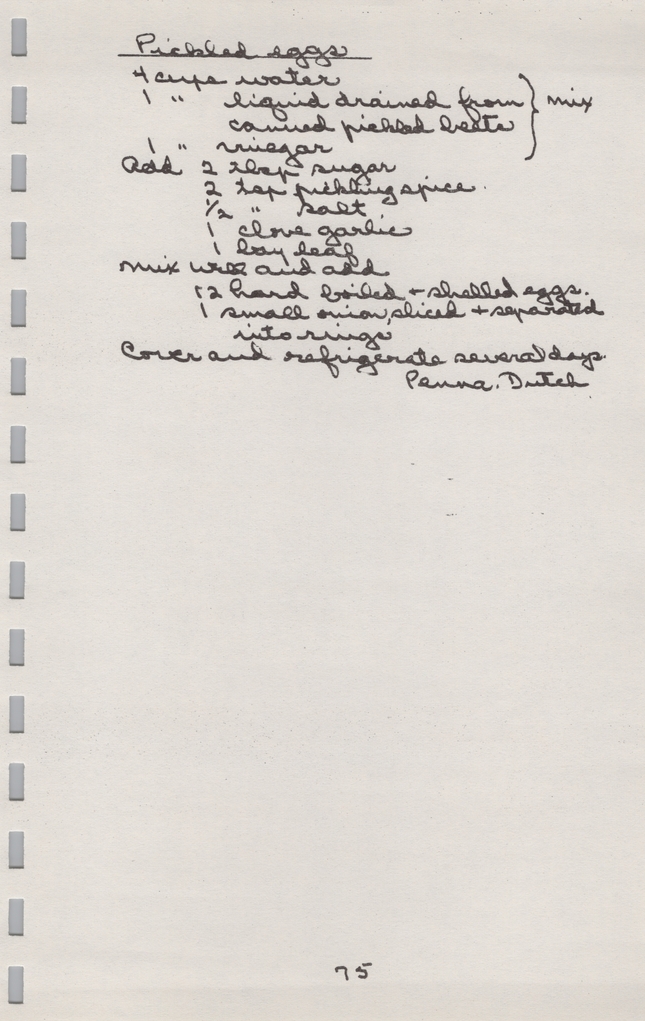 Pickled eggs
4 cups water
1 " liquid drained from } mix
canned pickled beets
1 " vinegar
Add 2 tbsp sugar
2 tsp pickling spice.
1/2 " salt
1 clove garlic
1 bay leaf
Mix well and add
12 hard boiled + shelled eggs.
1 small onion, sliced + separated
into rings
Cover and refrigerate several days.
Penna. Dutch
75